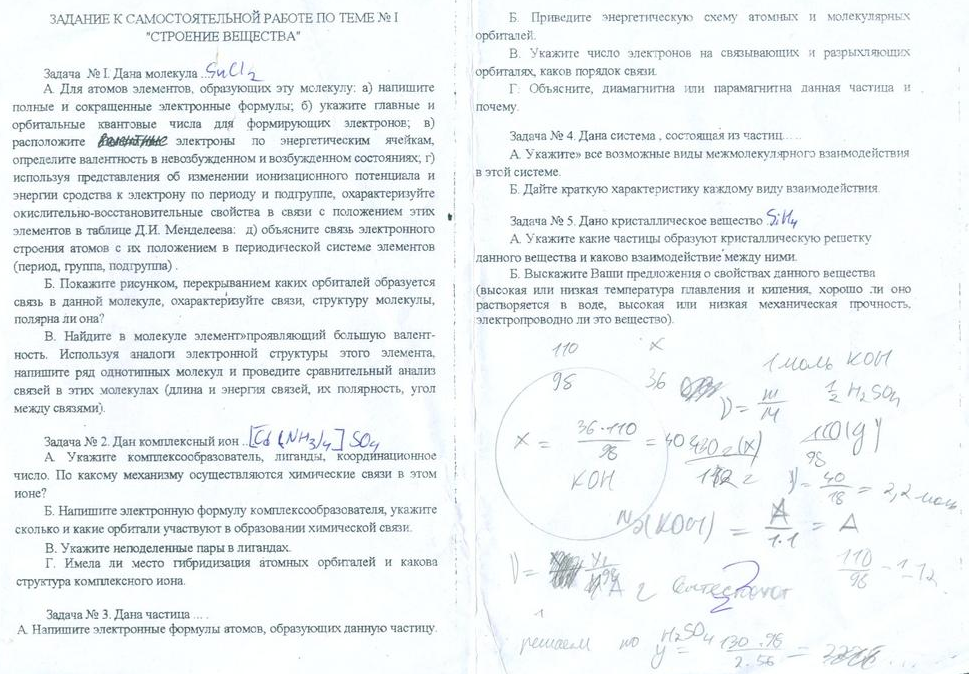 ЗАДАНИЕ К САМОСТОЯТЕЛЬНОЙ РАБОТЕ ПО ТЕМЕ № I
"СТРОЕНИЕ ВЕЩЕСТВА"
Задача № I. Дана молекула .. SnCl2
А. Для атомов элементов, образующих эту молекулу: а) напишите
полные и сокращенные электронные формулы; б) укажите главные и
орбитальные квантовые числа для формирующих электронов; в)
расположите валентные электроны по энергетическим ячейкам,
определите валентность в невозбужденном и возбужденном состояниях; г)
используя представления об изменении ионизационного потенциала и
энергии сродства к электрону по периоду и подгруппе, охарактеризуйте
окислительно-восстановительные свойства в связи с положением этих
элементов в таблице Д.И. Менделеева: д) объясните связь электронного
строения атомов с их положением в периодической системе элементов
(период, группа, подгруппа) .
Б. Покажите рисунком, перекрыванием каких орбиталей образуется
связь в данной молекуле, охарактеризуйте связи, структуру молекулы,
полярна ли она?
В. Найдите в молекуле элемент»проявляющий большую валент-
ность. Используя аналоги электронной структуры этого элемента,
напишите ряд однотипных молекул и проведите сравнительный анализ
связей в этих молекулах (длина и энергия связей, их полярность, угол
между связями).
Задача № 2. Дан комплексный ион .. [Cd(NH3)4]SO4
А. Укажите комплексообразователь, лиганды, координационное
число. По какому механизму осуществляются химические связи в этом
ионе?
Б. Напишите электронную формулу комплексообразователя, укажите
сколько и какие орбитали участвуют в образовании химической связи.
В. Укажите неподеленные пары в лигандах.
Г. Имела ли место гибридизация атомных орбиталей и какова
структура комплексного иона.
Задача № 3. Дана частица ... .
А. Напишите электронные формулы атомов, образующих данную частицу.
Б. Приведите энергетическую схему атомных и молекулярных
орбиталей.
В. Укажите число электронов на связывающих и разрыхляющих
орбиталях, каков порядок связи.
Г. Объясните, диамагнитна или парамагнитна данная частица и
почему.
Задача № 4. Дана система , состоящая из частиц... ..
А. Укажите» все возможные виды межмолекулярного взаимодействия
в этой системе.
Б. Дайте краткую характеристику каждому виду взаимодействия.
Задача № 5. Дано кристаллическое вещество SiH4
А. Укажите какие частицы образуют кристаллическую решетку
данного вещества и каково взаимодействие между ними.
Б. Выскажите Ваши предложения о свойствах данного вещества
(высокая или низкая температура плавления и кипения, хорошо ли оно
растворяется в воде, высокая или низкая механическая прочность,
электропроводно ли это вещество).
110 x
98 36
1 моль KOH
1/2 H2SO4
ν = m/M
x = 36·110/98 = 40
KOH
ν = 40/18 = 2,2 моль
N2(KOH) = A/1·1 = A
110/98 - 1-12
решаем по H2SO4
y = 130·98/2·56 =